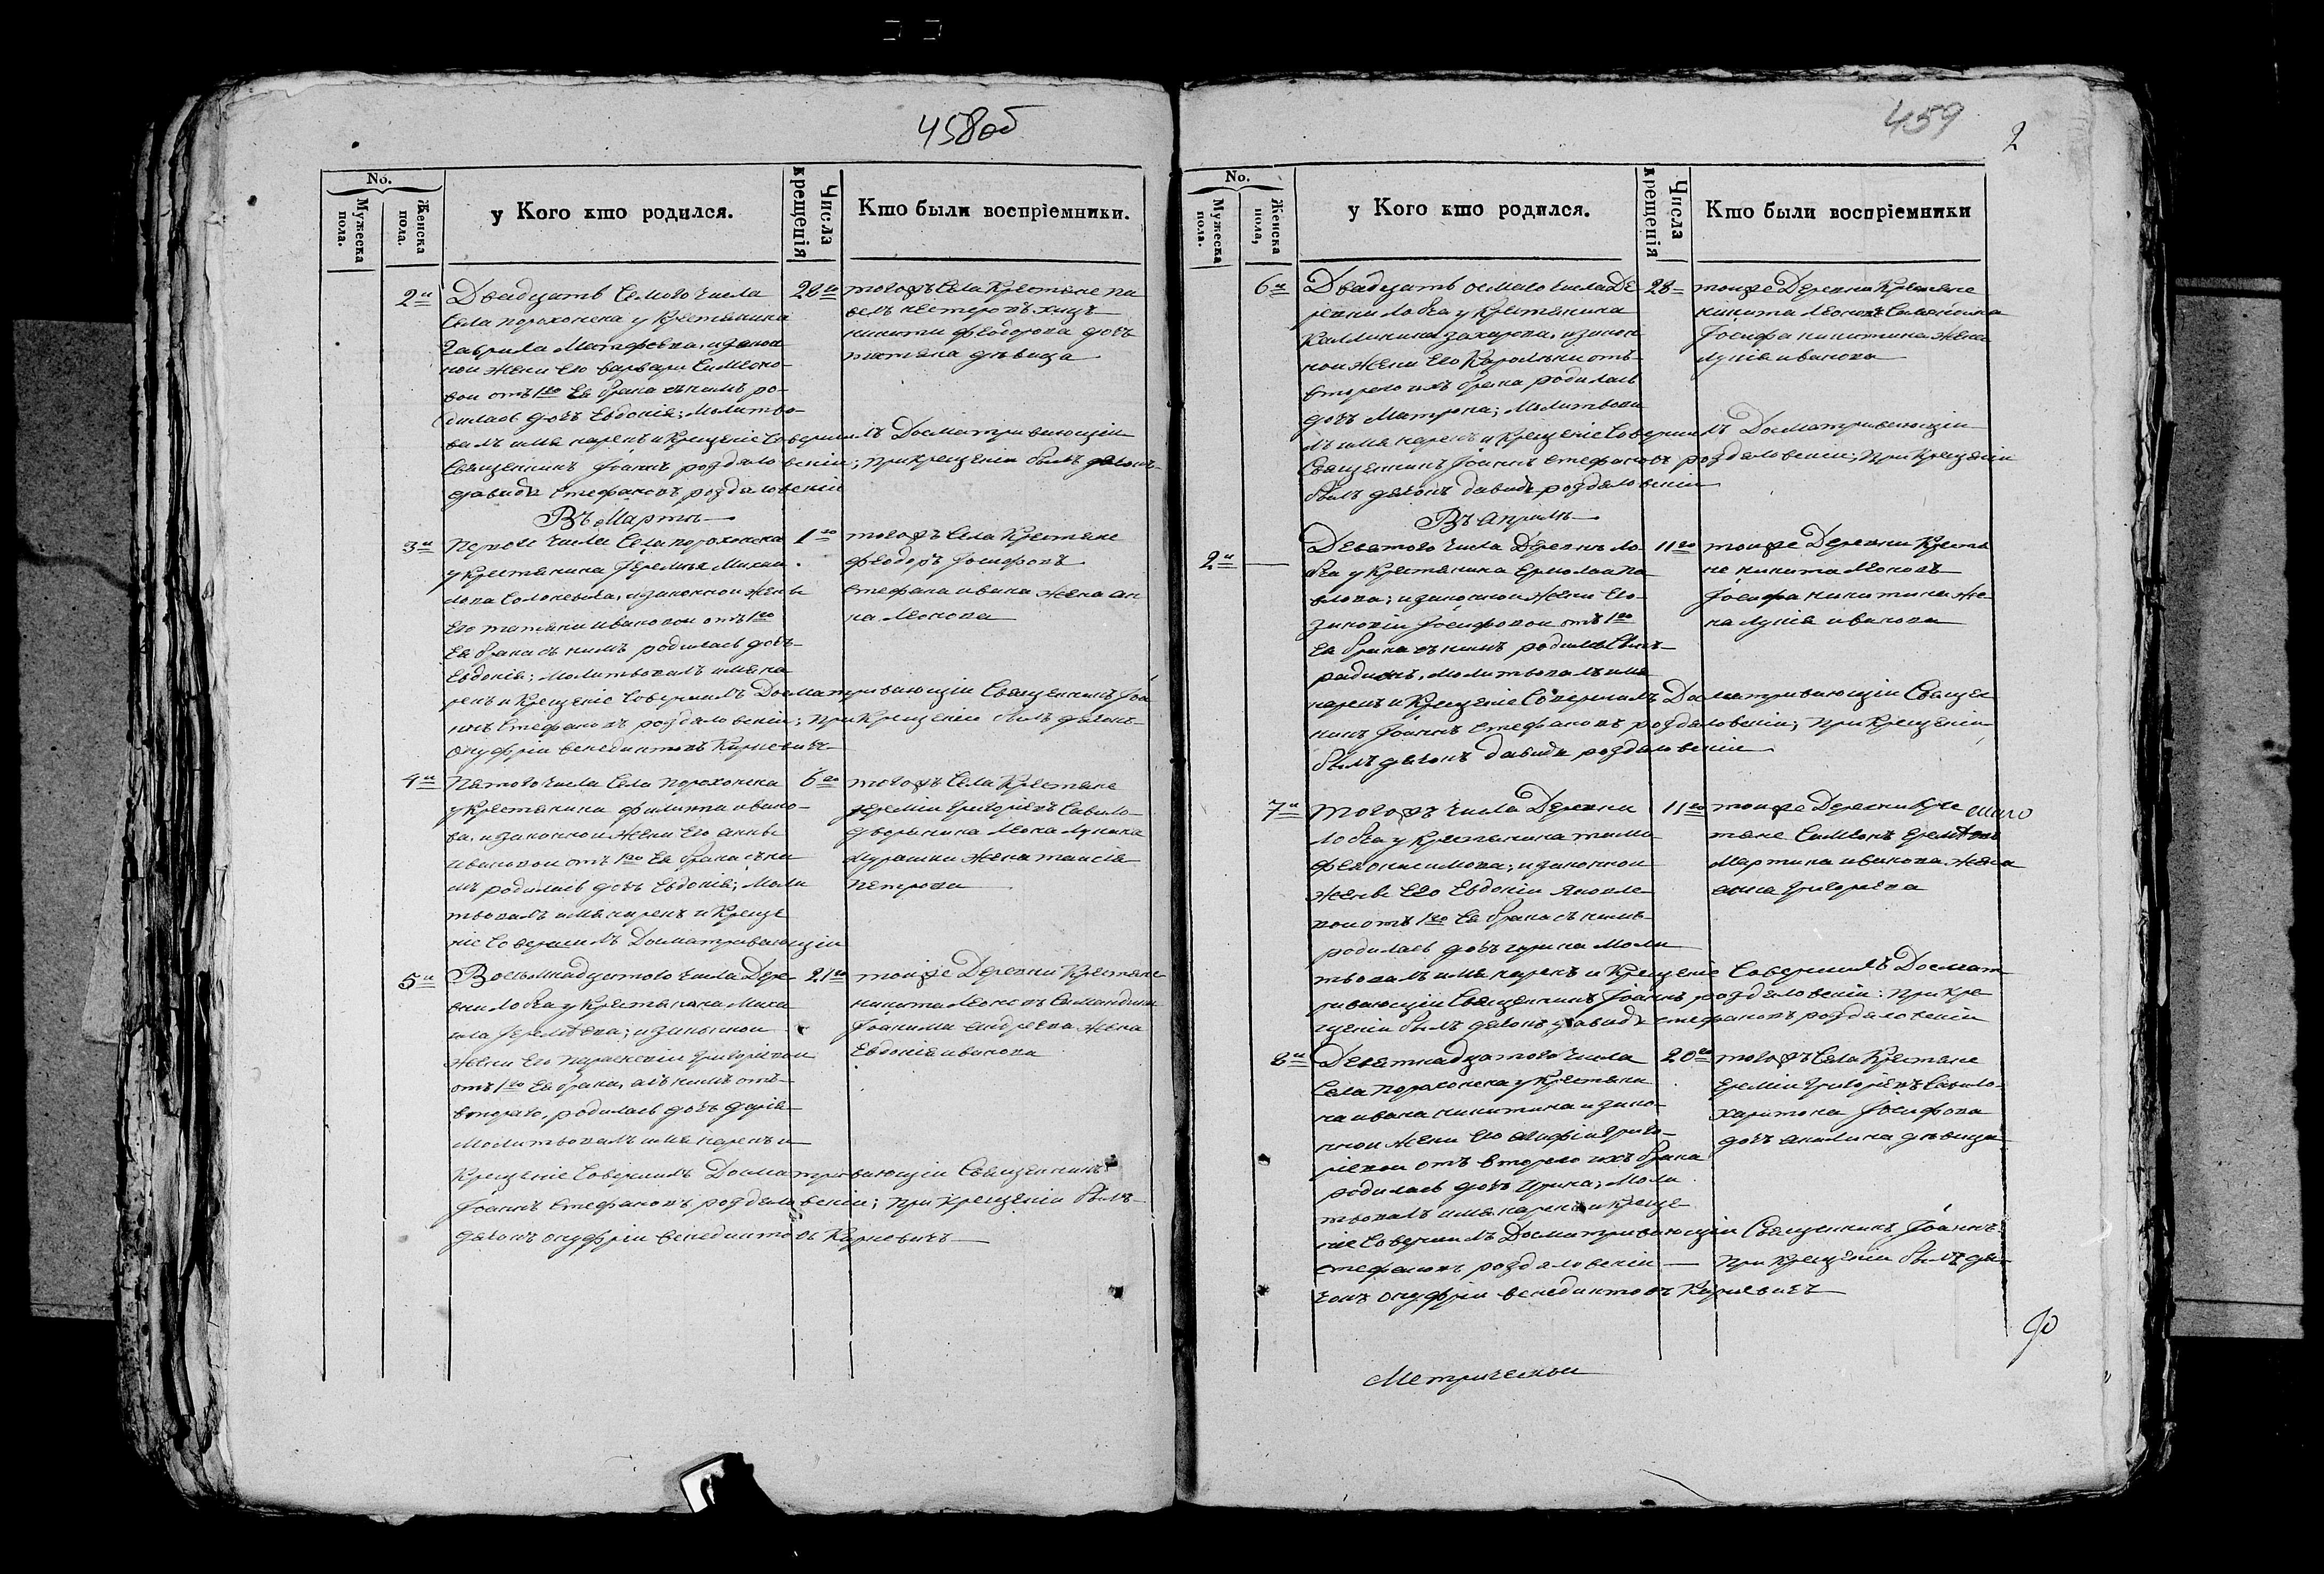 458об
No.
Мужеска пола.
Женска пола.
у Кого кто родился.
Числа крещенія
Кто были воспріемники.
2й
Двадцать Семого числа
Села порохонска у Крестянина
Гаврила Матфеева, изакон
ной жены Его варвары Симеоно-
вои отъ 1го Ея брака снимъ ро-
дилась дочь Евдокія; Молитво-
валъ имя нарекъ и Крещеніе Совершилъ Досматривающіи
Священникъ Іоаннъ роздяловскіи; При крещеніи былъ дячокъ
давидъ Стефановъ роздяловскіи
28го
тогожъ Села Крестяне па
велъ нестеровъ
никиты феодорова дочь
татяна дѣвица
Въ Мартѣ
3й
Села порохонска
у Крестянина Іеремія Михаи
лова изаконнои жены
Его татяны ивановои отъ 1го
Ея брака съ нимъ родилась дочь
Евдокія; молитвовалъ имя на
рекъ и Крещеніе Совершилъ Досматривающіи Священникъ Іоа
ннъ Стефановъ роздяловскіи; При Крещеніи былъ дячокъ
Онуфріи венедиктовъ
1го
тогожъ Села Крестяне
феодоръ Іосифовъ
Стефана ивана жена ан
на Леонова
4й
Пятого числа Села порохонска
у Крестянина филиппа ивано-
ва, изаконнои жены Его анны
ивановои отъ 1го Ея брака сни
мъ родилась дочь Евдокія; Моли
твовалъ имя нарекъ и Креще
ніе Совершилъ Досматривающіи
6го
тогожъ Села Крестяне
Іереміи григоріевъ
Леона Лукина
жена таисія
петрова
5й
Восьмнадцатого числа Дере
вни Лобча у Крестянина Миха
ила Іеремѣева; изаконнои
жены Его параскевіи григоріевои
отъ 1го Ея брака, а съ нимъ отъ
второго, родилась дочь дарія
молитвовалъ имя нарекъ и
Крещеніе Совершилъ Досматривающіи Священникъ
Іоаннъ Стефановъ роздяловскіи; При крещеніи былъ
дячокъ онуфріи венедиктовъ
21го
тоиже Деревни Крестяне
никита Леоновъ
Іоакима андреева жена
Евдокія иванова
459
2
No.
Мужеска пола.
Женска пола,
у Кого кто родился.
Числа крещенія
Кто были воспріемники
6й
Двадцать осмаго числа Де
ревни Лобча у Крестянина
Каллиника захарова, изакон
нои жены Его отъ
второго ихъ брака родилась
дочь Матрона; Молитвова
лъ имя нарекъ и Крещеніе Совершилъ Досматривающіи
Священникъ Іоаннъ Стефановъ роздяловскіи; При Крещеніи
былъ дячокъ давидъ роздяловскіи
28
тоиже Деревни Крестяне
никита Леоновъ
Іосифа никитина жена
Лукія иванова
Въ Априлѣ
2й
Девятого числа Деревнѣ Ло-
бча у Крестянина Ермолая па
влова; изаконнои жены Его
зиновіи Іосифовои отъ 1го
Ея брака снимъ родился Сынъ
молитвовалъ имя
нарекъ и Крещеніе Совершилъ Досматривающіи Священ
никъ Іоаннъ Стефановъ роздяловскіи; при Крещеніи
былъ дячокъ давидъ роздяловскіи
11го
тоиже Деревни Крестя
не никита Леоновъ
Іосифа никитина же-
на Лукія иванова
7й
тогожъ числа Деревни
Лобча у Крестянина тимо
фея изаконнои
жены Его Евдокіи яковле
вои отъ 1го Ея брака съ нимъ
родилась дочь ирина моли
твовалъ имя нарекъ и Крещеніе Совершилъ Досмат
ривающіи Священникъ Іоаннъ роздяловскіи: при кре
щеніи былъ дячокъ давидъ стефановъ роздяловскіи
11го
тоиже Деревни Кре
стяне Симеонъ
Мартина иванова жена
анна григорева
8й
Девятнадцатого числа
Села порохонска у Крестяни
на ивана никитина изако-
ннои жены Его григо-
ріевои отъ второго ихъ брака
родилась дочь Ирина; Моли
твовалъ имя нарекъ и Креще
ніе Совершилъ Досматривающіи Священникъ Іоаннъ
стефановъ роздяловскіи — При крещеніи былъ дя-
чокъ онуфріи венедиктовъ
20го
тогожъ Села Крестяне
Ереміи григоріевъ
харитона Іосифова
дочь дѣвица
Метрическои